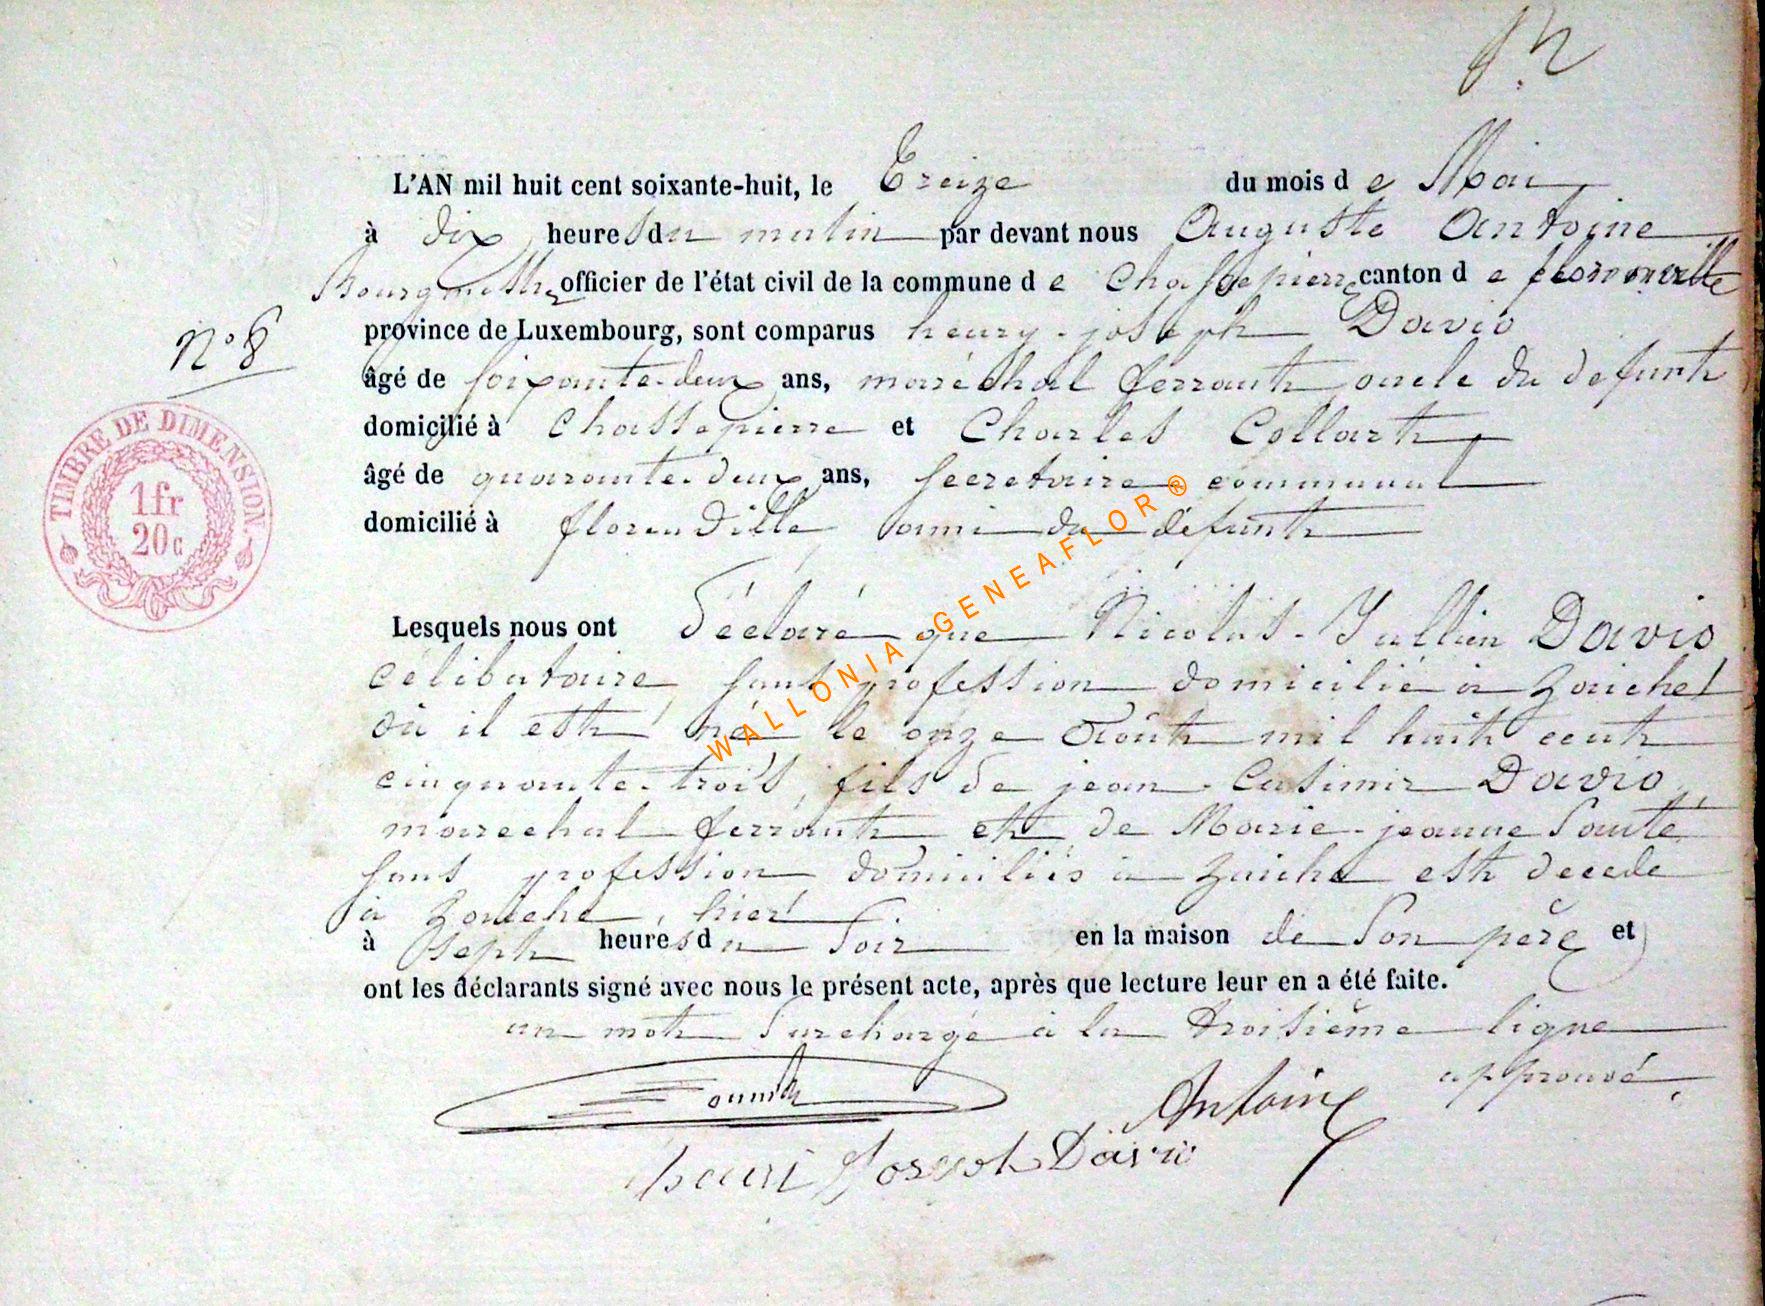 L'AN mil huit cent soixante-huit, le Treize du mois de Mai
à dix heures du matin par devant nous Auguste Antoine
Bourgmestre officier de l'état civil de la commune de Chassepierre canton de florenville
province de Luxembourg, sont comparus henry-joseph Davio
N° 8
âgé de soixante-deux ans, maréchal ferrant, oncle du defunt
domicilié à Chassepierre et Charles Collart
âgé de quarante-deux ans, secretaire communal
domicilié à florenville ami du défunt
TIMBRE DE DIMENSION
1 fr
20 c
Lesquels nous ont déclaré que Nicolas-Jullien Davio
célibataire, sans profession domicilié à
où il est né le onze Août mil huit cent
cinquante-trois, fils de jean-Casimir Davio
marechal ferrant et de Marie-jeanne
sans profession domiciliés à est decede
à hier
à sept heures du soir en la maison de son père et
ont les déclarants signé avec nous le présent acte, après que lecture leur en a été faite.
un mot surchargé à la troisième ligne
approuvé
Antoine
henri Joseph Davio
WALLONIA GENEAFLOR ®